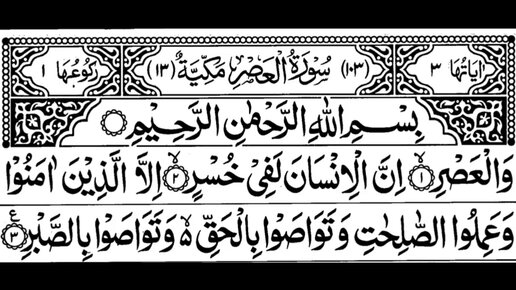 اٰيَاتُهَا ٣ (١٠٣) سُوْرَةُ الْعَصْرِ مَكِّيَّةٌ (١٣) رُكُوْعُهَا ١
بِسْمِ اللّٰهِ الرَّحْمٰنِ الرَّحِيْمِ
وَالْعَصْرِ ۙ﴿١﴾ اِنَّ الْاِنْسَانَ لَفِيْ خُسْرٍ ۙ﴿٢﴾ اِلَّا الَّذِيْنَ اٰمَنُوْا
وَعَمِلُوا الصّٰلِحٰتِ وَتَوَاصَوْا بِالْحَقِّ ۙ٥ وَتَوَاصَوْا بِالصَّبْرِ ﴿٣﴾ ع